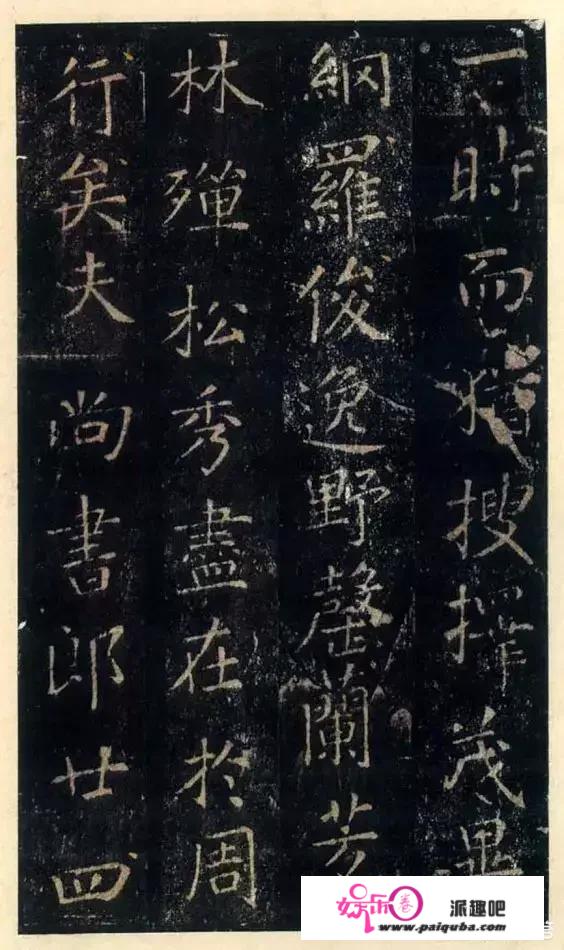 一時而猶搜擇茂異
網羅俊逸野罄蘭芳
林殫松秀盡在於周
行矣夫尚書郎廿四
娱乐圈 派趣吧
www.paiquba.com